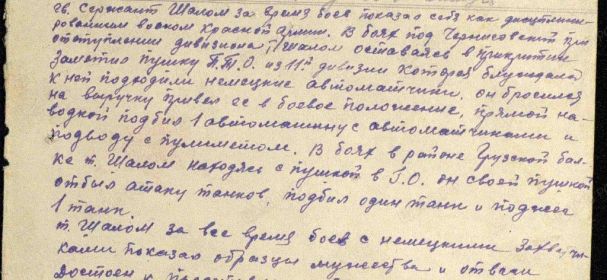 гв. Сержант Шалом за время боев показал себя как дисциплини-
рованным воином Красной армии. В боях под Чернисовский при
отступлении дивизиона, т. Шалом оставаясь в прикрытии
Заметив пушку П.Т.О. из 11й дивизии которая блуждала
к ней подходили немецкие автоматчики, он бросился
на выручку привел ее в боевое положение, прямой на-
водкой подбил 1 автомашину с автоматчиками и
подводу с пулиметом. В боях в районе Грузской бал-
ке т. Шалом находясь с пушкой в Г.О. он своей пушкой
отбил атаку танков, подбил один танк и поджег
1 танк.
т. Шалом за все время боев с немецкими Захватчи-
ками показал образцы мужества и отваги
Достоен к